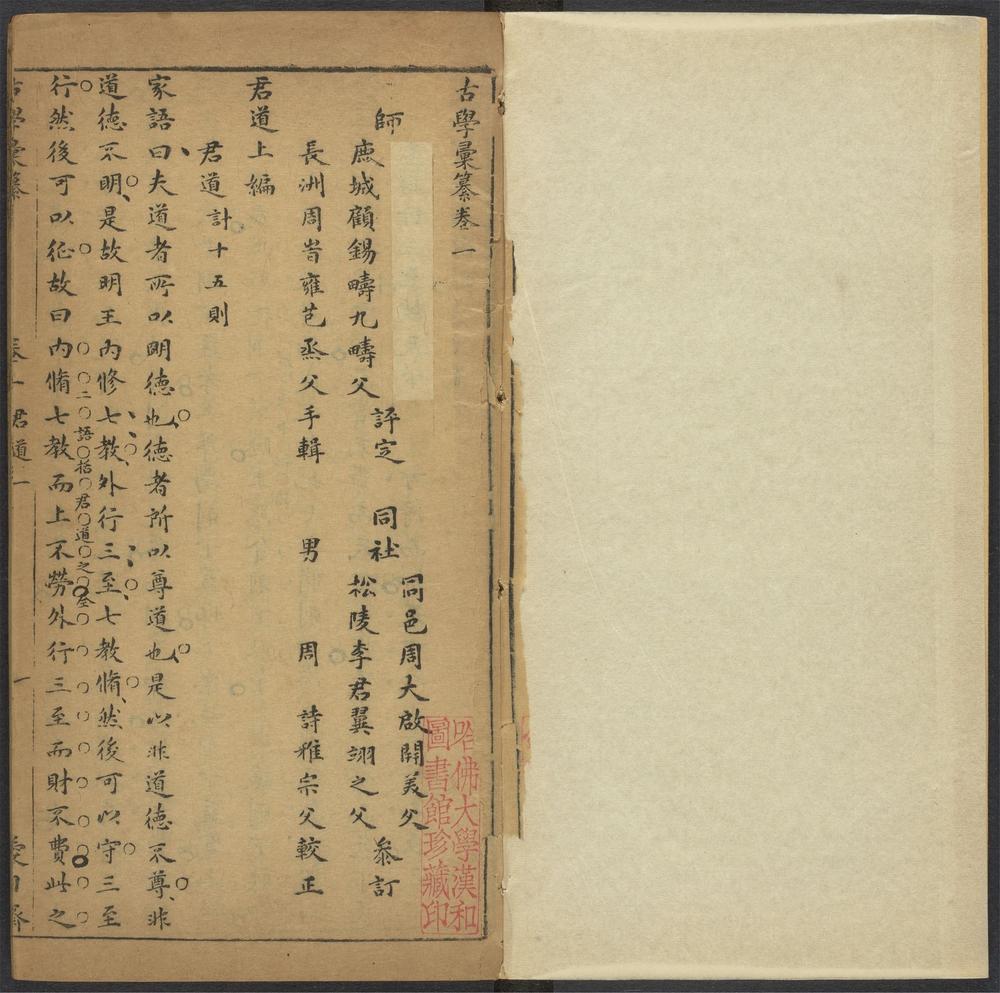 古學彙纂卷一
同邑周大啟開美父
師
鹿城顧錫疇九疇父
評定
同社
松陵李君翼翊之父
參訂
長洲周時雍芑烝父手輯
男
周
詩雅宗父較正
君道上編
君道計十五則
家語曰夫道者所以明德也德者所以尊道也是以非道德不尊非
道德不明是故明王內修七教外行三至七教脩然後可以守三至
二語括君道之全
行然後可以征故曰內脩七教而上不勞外行三至而財不費此之
古學彙纂
卷一
君道
一
哈佛大學漢和
圖書館珍藏印